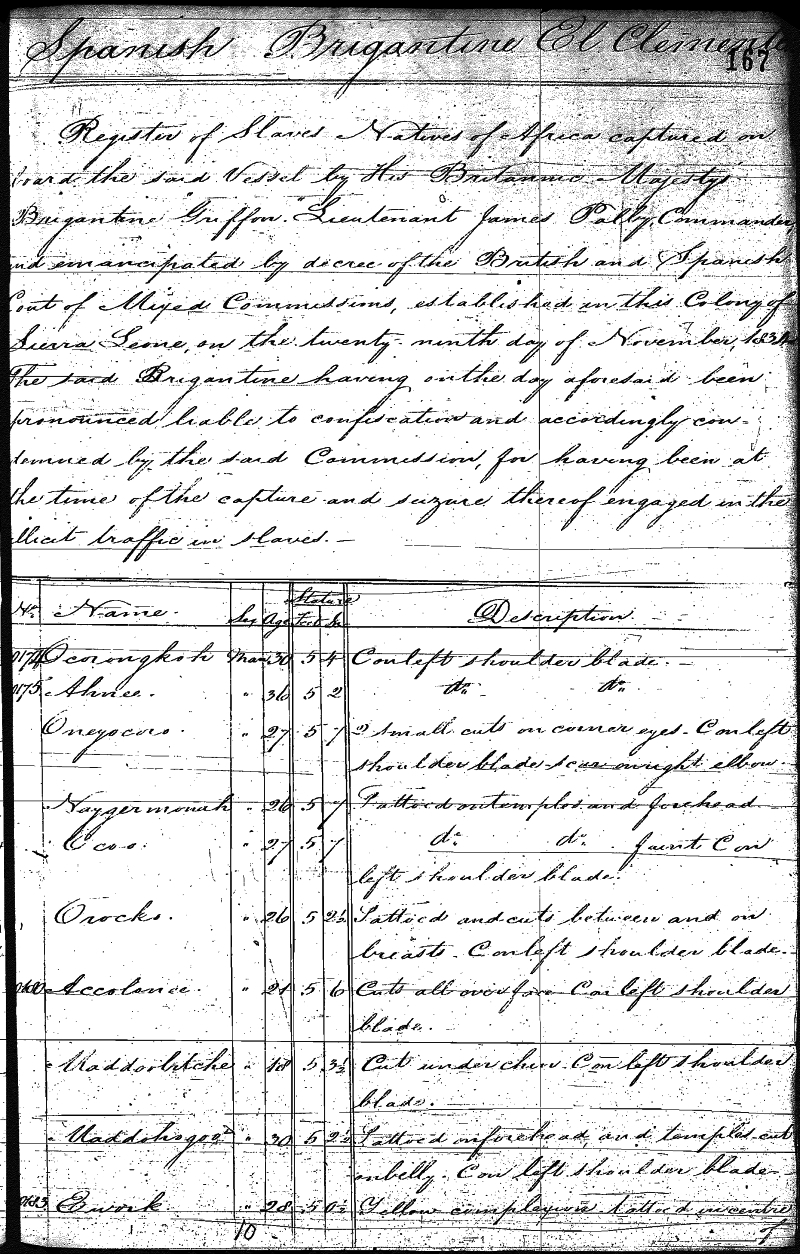 Spanish Brigantine El Clemente
167
Register of Slaves Natives of Africa captured on
board the said Vessel by His Britannic Majestys
Brigantine Griffon. Lieutenant James Polby, Commander,
and emancipated by decree of the British and Spanish
Cout of Mixed Commissions, established in this Colony of
Sierra Leone, on the twenty-ninth day of November, 1834
The said Brigantine having on the day aforesaid been
pronounced liable to confiscation and accordingly con-
demned by the said Commission, for having been at
the time of the capture and seizure thereof engaged in the
illicit traffic in slaves. -
No. Name. Sex Age Stature Feet In Description
Ocorongkoh Man 30 5 4 C on left shoulder blade. -
Ahnee. " 36 5 2 do. do.
Oneyocoro. " 27 5 7 2 small cuts on corner eyes. C on left
shoulder blade - scar on right elbow.
Naygermonah " 26 5 7 Tattoed on temples and forehead.
Ocoo. " 27 5 7 do. do. faint C on
left shoulder blade.
Orocko. " 26 5 2½ Tattoed and cuts between and on
breasts. C on left shoulder blade.
Accolence. " 21 5 6 Cuts all over face C on left shoulder
blade.
Maddorbitche " 18 5 3½ Cut under chin. C on left shoulder
blade. -
" 30 5 2½ Tattoed on forehead, and temples cut
on belly. C on left shoulder blade -
Ework. " 28 5 0½ Yellow complexion tattoed in centre
10 of